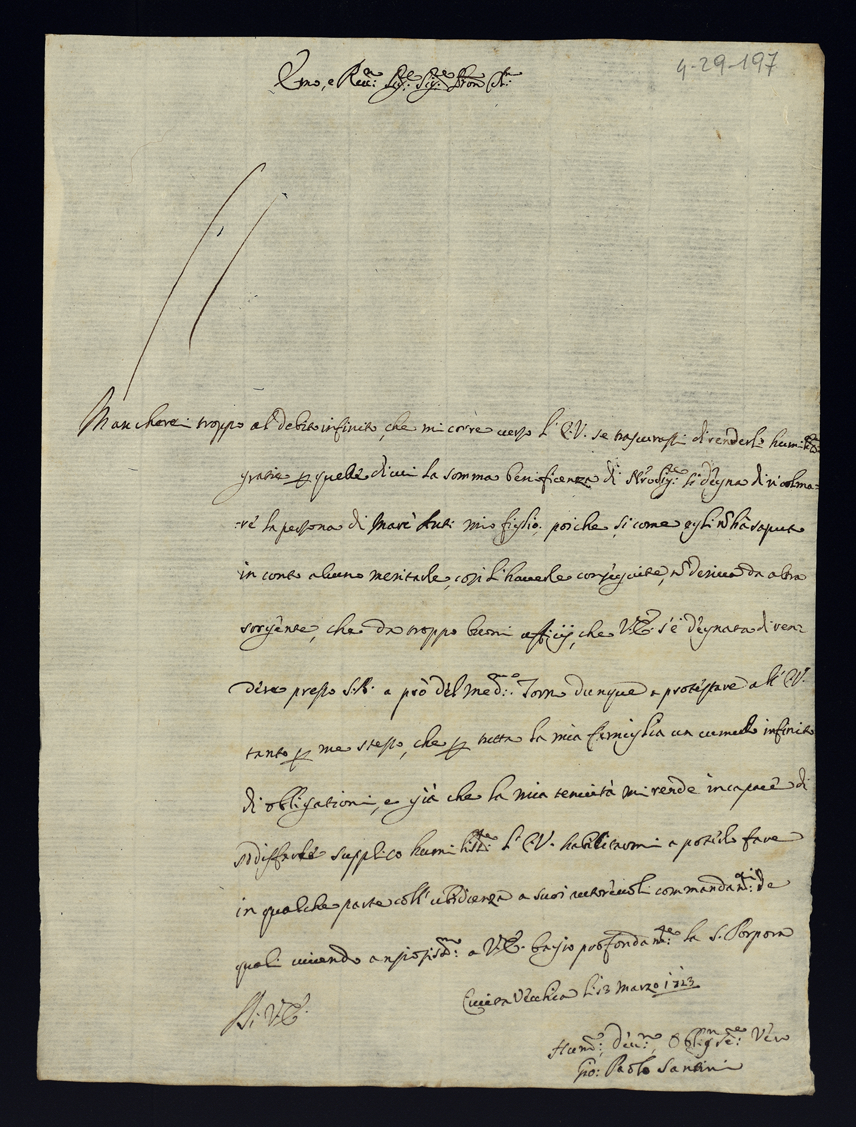 4-29-197
Emo, e Reu:mo Sig:re Sig:re Pron
Mancherei troppo al debito infinito, che mi corre verso l'E.V. se trascurassi di renderle humil:me
gratie p quelle di cui la somma beneficenza di Nro Sig:re si degna di ricolma=
=re la persona di mio figlio, poiche, si come egli nō hà saputo
in conto alcuno meritarle, così l'haverle conseguite, nō deriva da altra
sorgente, che da troppo buoni officij, che V.E. s'è degnata di ren=
dere presso S.S. a prò del med:mo. Torno dunque a protestare all'E.V.
tanto p me stesso, che p tutta la mia famiglia un cumulo infinito
di obligationi, e già che la mia tenuità mi rende incapace di
sodisfarle supplico humilist:te l'E.V. habilitarmi a poterlo fare
in qualche parte coll'ubidienza a suoi autorevoli commandam:ti de
quali vivendo ansiosis:mo a V.E. bagio profondam:te la S. Porpora
Civita Vecchia li 13 Marzo 1723
Di V.E.
Hum:mo, Dev:mo, Oblig:mo Se:re Vero
Gio: Paolo Santini